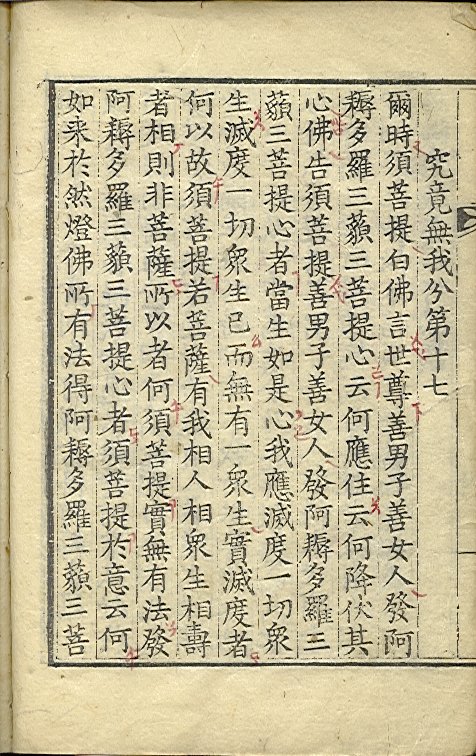 究竟無我分第十七
爾時須菩提白佛言世尊善男子善女人發阿
耨多羅三藐三菩提心云何應住云何降伏其
心佛告須菩提善男子善女人發阿耨多羅三
藐三菩提心者當生如是心我應滅度一切衆
生滅度一切衆生已而無有一衆生實滅度者
何以故須菩提若菩薩有我相人相衆生相壽
者相則非菩薩所以者何須菩提實無有法發
阿耨多羅三藐三菩提心者須菩提於意云何
如来於然燈佛所有法得阿耨多羅三藐三菩